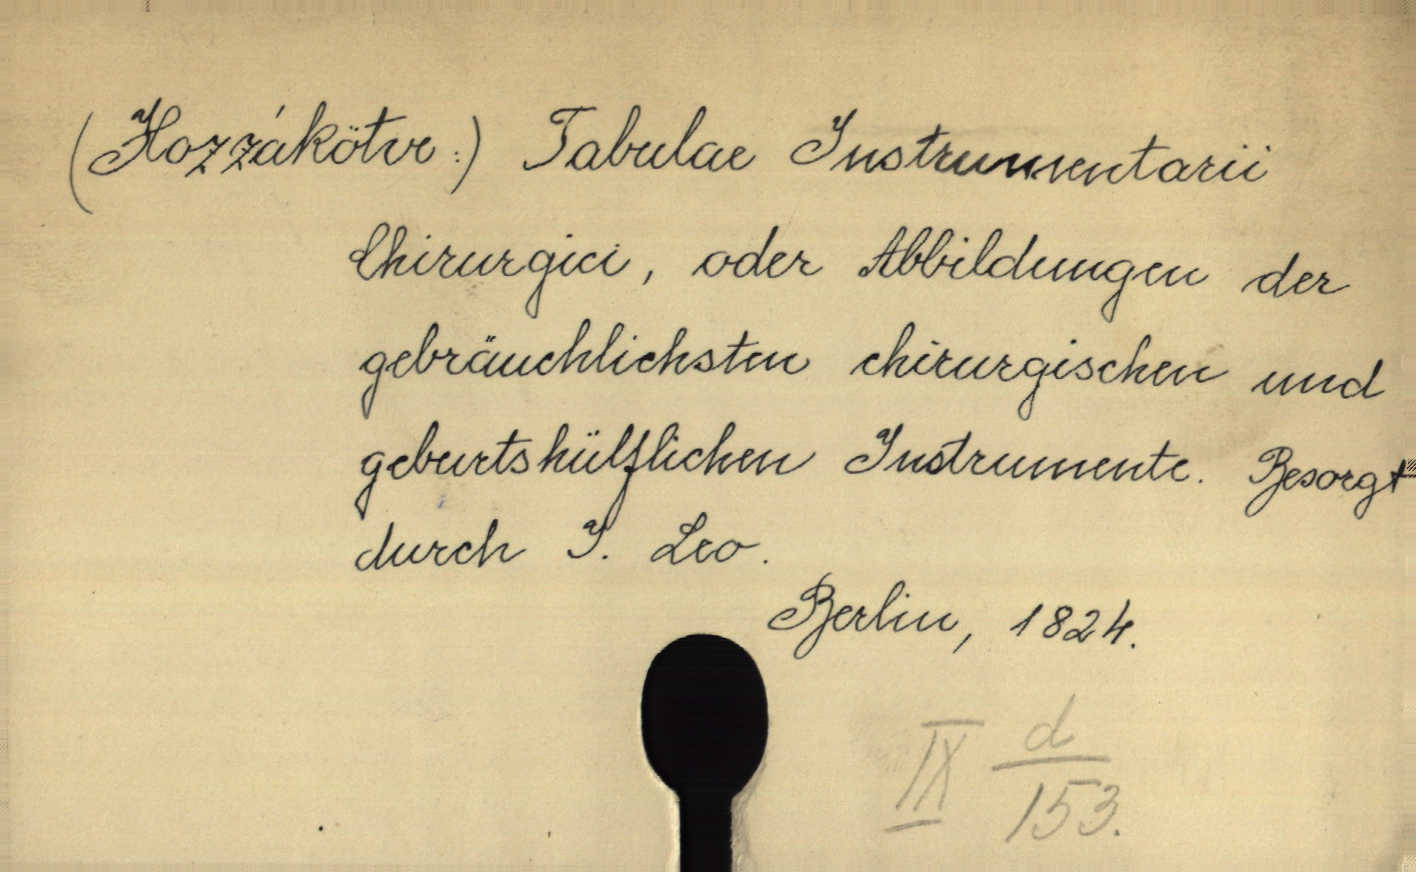 (Hozzákötve:) Tabulae Instrumentarii
Chirurgici, oder Abbildungen der
gebräuchlichsten chirurgischen und
geburtshülflichen Instrumente. Besorgt
durch I. Leo.
Berlin, 1824.
IX d/153.